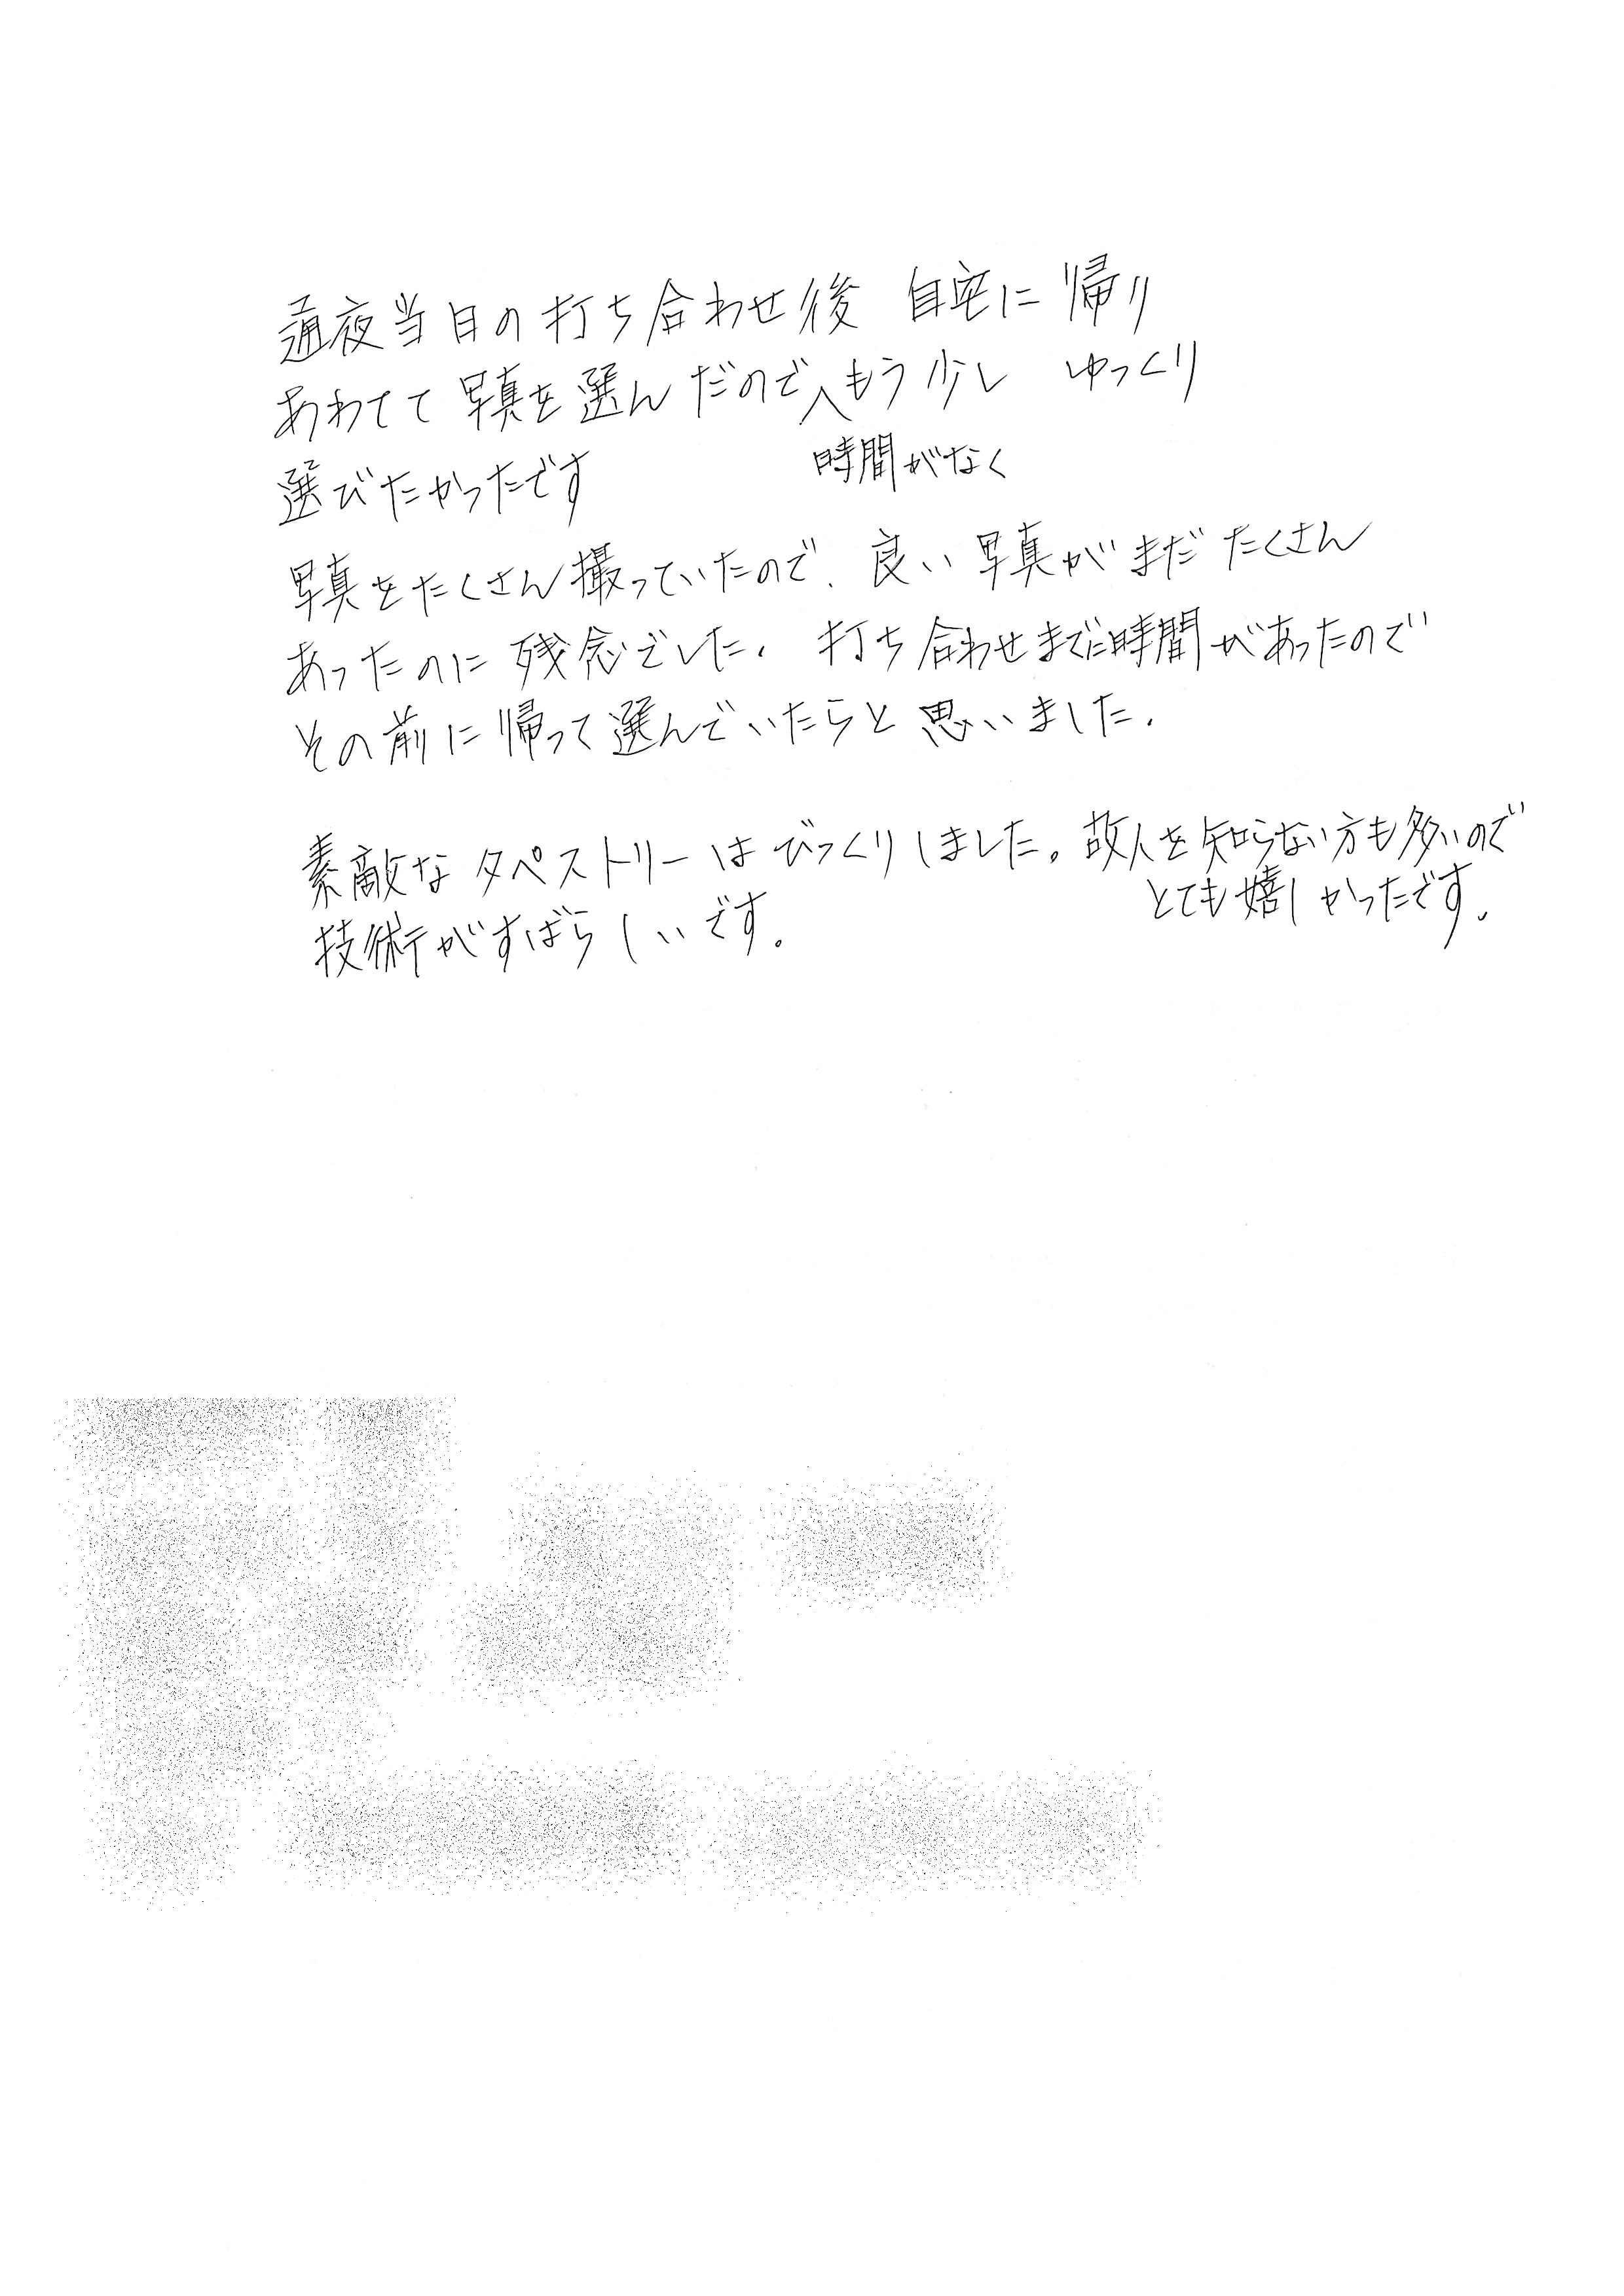 通夜当日の打ち合わせ後 自宅に帰り
あわてて写真を選んだので もう少し ゆっくり
時間がなく
選びたかったです
写真をたくさん撮っていたので、良い写真がまだたくさん
あったのに残念でした。打ち合わせまでに時間があったので
その前に帰って選んでいたらと思いました。
素敵なタペストリーはびっくりしました。故人を知らない方も多いので
とても嬉しかったです。
技術がすばらしいです。